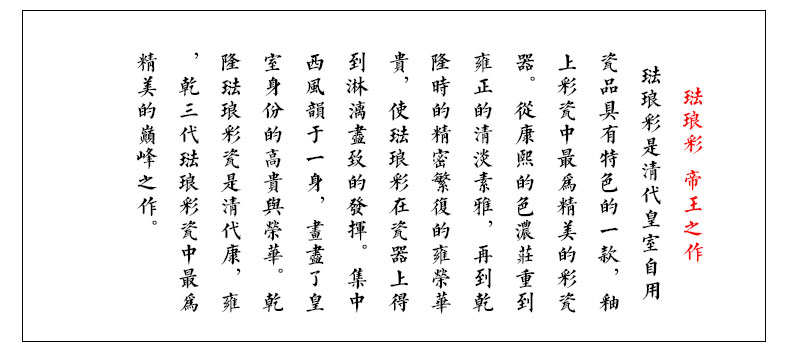 琺琅彩 帝王之作
琺琅彩是清代皇室自用
瓷品具有特色的一款，釉
上彩瓷中最爲精美的彩瓷
器。從康熙的色濃莊重到
雍正的清淡素雅，再到乾
隆時的精密繁復的雍榮華
貴，使琺琅彩在瓷器上得
到淋漓盡致的發揮。集中
西風韻于一身，畫盡了皇
室身份的高貴與榮華。乾
隆琺琅彩瓷是清代康，雍
，乾三代琺琅彩瓷中最爲
精美的巔峰之作。